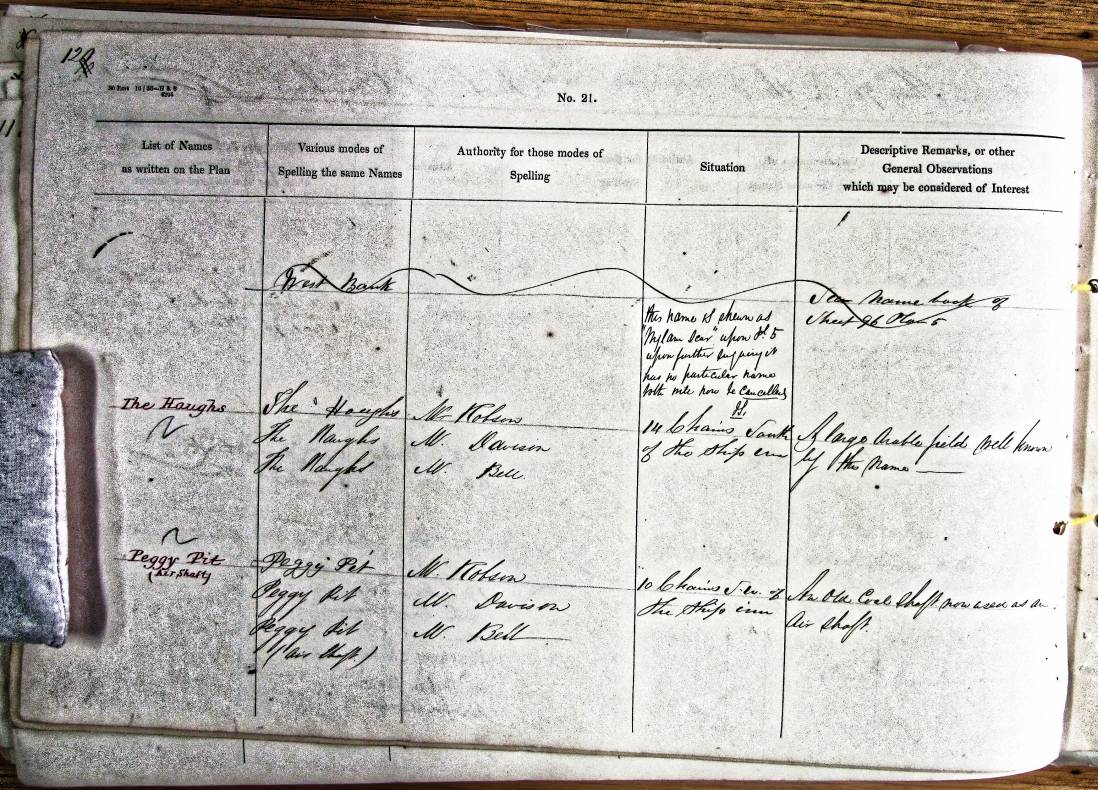 No. 21.
List of Names
as written on the Plan
Various modes of
Spelling the same Names
Authority for those modes of
Spelling
Situation
Descriptive Remarks, or other
General Observations
which may be considered of Interest
West Bank
name book of
Sheet 96 Plan 5
this name is shewn as
"Wylam Scar" upon Pl. 5
upon further enquiry it
has no particular name
both will now be cancelled
The Haughs
The Haughs
The Haughs
The Haughs
W. Robson
W. Davison
W. Bell
14 Chains South
of the Ship inn
A large Arable field well known
by this name
Peggy Pit
(Air Shaft)
Peggy Pit
Peggy Pit
Peggy Pit
(air shaft.)
W. Robson
W. Davison
W. Bell
10 Chains S.W. of
the Ship inn
An Old Coal Shaft now used as an
Air Shaft.